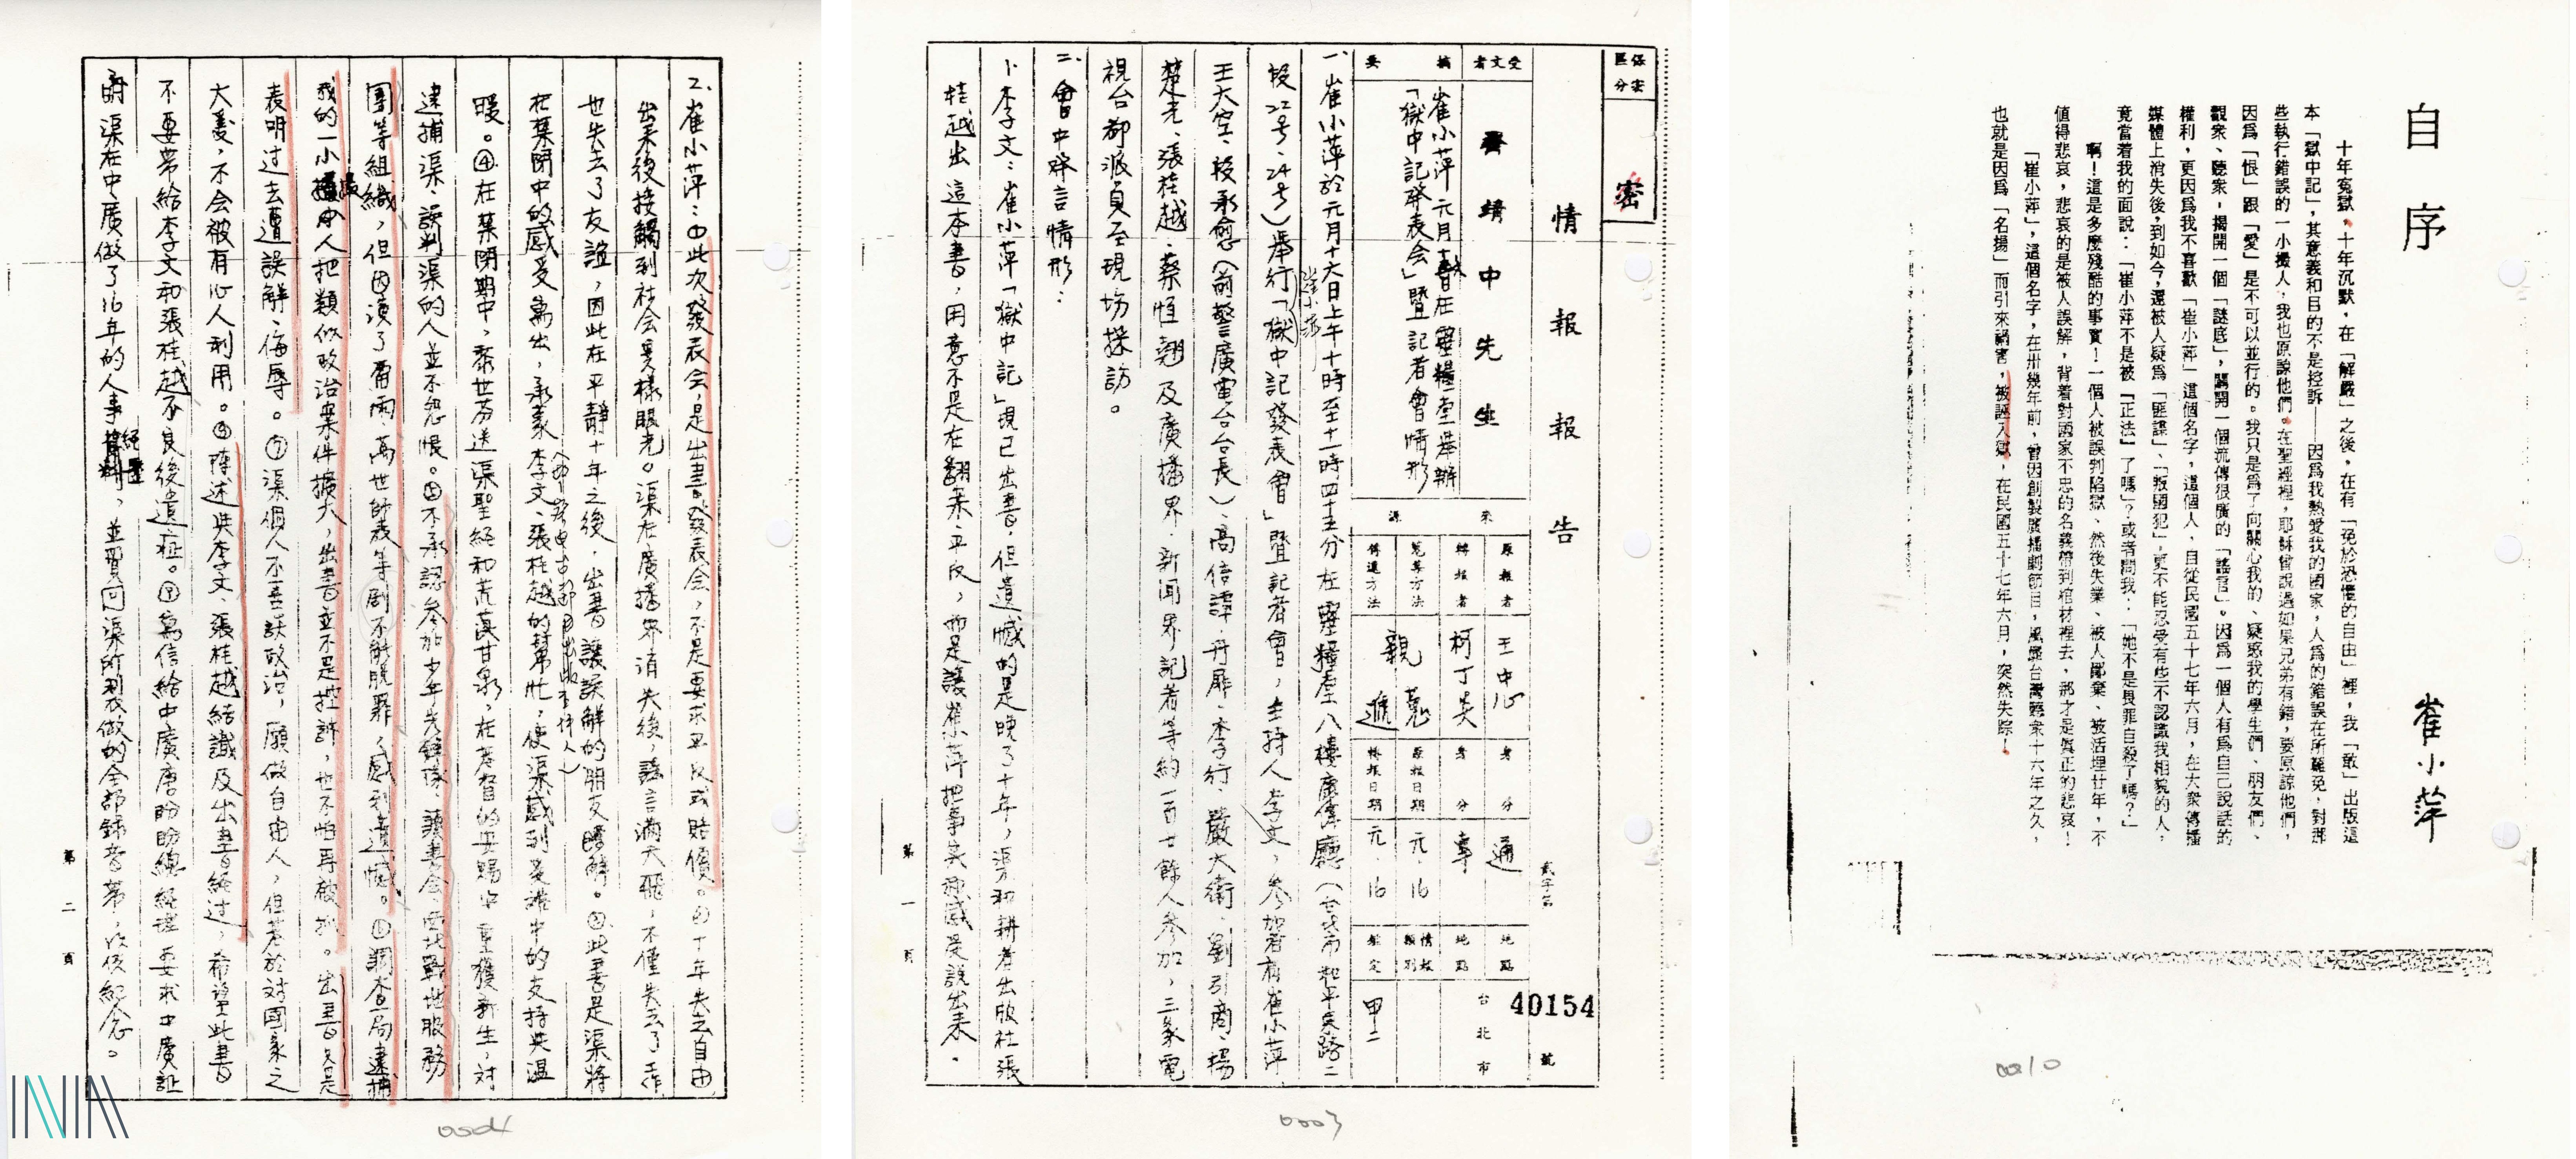 自序
崔小萍
十年冤獄，十年沉默，在「解嚴」之後，在有「免於恐懼的自由」裡，我「敢」出版這
本「獄中記」，其意義和目的不是控訴——因爲我熱愛我的國家，人爲的錯誤在所難免，對那
些執行錯誤的一小撮人，我也原諒他們。在聖經裡，耶穌曾說過如果兄弟有錯，要原諒他們，
因爲「恨」跟「愛」是不可以並行的。我只是爲了向關心我的、疑惑我的學生們、朋友們、
觀衆、聽衆，揭開一個「謎底」，闢開一個流傳很廣的「謠言」。因爲一個人有爲自己說話的
權利，更因爲我不喜歡「崔小萍」這個名字，這個人，自從民國五十七年六月，在大衆傳播
媒體上消失後，到如今，還被人疑爲「匪諜」、「叛國犯」，更不能忍受有些不認識我相貌的人，
竟當着我的面說：「崔小萍不是被『正法』了嗎？或者問我：「她不是畏罪自殺了嗎？」
啊！這是多麼殘酷的事實！一個人被誤判陷獄、然後失業、被人鄙棄、被活埋廿年，不
值得悲哀，悲哀的是被人誤解，背着對國家不忠的名義帶到棺材裡去，那才是眞正的悲哀！
「崔小萍」，這個名字，在卅幾年前，曾因創製廣播劇節目，風靡台灣聽衆十六年之久，
也就是因爲「名揚」而引來禍害，被誣入獄，在民國五十七年六月，突然失踪！
0010
保密區分
密
情報報告
貳字第
40154
號
受文者
齊靖中先生
摘要
崔小萍元月在靈糧堂舉辦
「獄中記發表會」暨記者會情形
來源
原報者
王中心
身分
通
地點
台北市
轉報者
柯丁英
身分
專
地點
蒐集方法
親蒐
原報日期
元．16
情報類別
傳遞方法
親遞
轉報日期
元．16
鑑定
甲二
一、崔小萍於元月十六日上午十時至十一時四十五分在靈糧堂八樓康偉廳（台北市和平東路二
段22号、24号）舉行「獄中記發表會」暨記者會，主持人李文，參加者有崔小萍、
王大空、段承愈（前警廣電台台長）、高信譚、丹扉、李行、嚴大衛、劉引商、楊
楚光、張桂越、蔡恒翹及廣播界、新聞界記者等約一百廿餘人參加，三家電
視台都派員至現場採訪。
二、會中發言情形：
1.李文：崔小萍「獄中記」現已出書，但遺憾的是晚了十年，渠和耕者出版社張
桂越出這本書，用意不是在翻案、平反，而是讓崔小萍把事實和感受說出來。
第一頁
0003
2.崔小萍：①此次發表会，是出書發表会，不是要求平反或賠償。②十年失去自由
出來後接觸到社会異樣眼光。渠在廣播界消失後，謠言滿天飛，不僅失去了工作
也失去了友誼，因此在平靜十年之後，出書讓誤解的朋友瞭解。③此書是渠將
在禁閉中的感受寫出，承蒙李文、張桂越的幫忙，使渠感到受難中的支持與溫
暖。④在禁閉期中，黎世芬送渠聖經和荒漠甘泉，在基督的安賜中重獲新生，对
逮捕渠、誤判渠的人並不怨恨。⑤不承認參加少年先鋒隊、讀書会、西北戰地服務
團等組織，但因演了雷雨、萬世師表等剧不能脫罪，感到遺憾。⑥調查局逮捕
我的一小撮人把類似政治案件擴大，出書並不是控訴，也不怕再被抓。出書只是
表明过去遭誤解、侮辱。⑦渠個人不喜談政治，願做自由人，但基於对國家之
大愛，不会被有心人利用。⑧陳述與李文、張桂越結識及出書經过，希望此書
不要帶給李文和張桂越不良後遺症。⑨寫信給中廣唐盼盼總經理要求中廣証
明渠在中廣做了16年的人事經歷，並買回渠所製做的全部錄音帶，以做紀念。
第二頁
0004